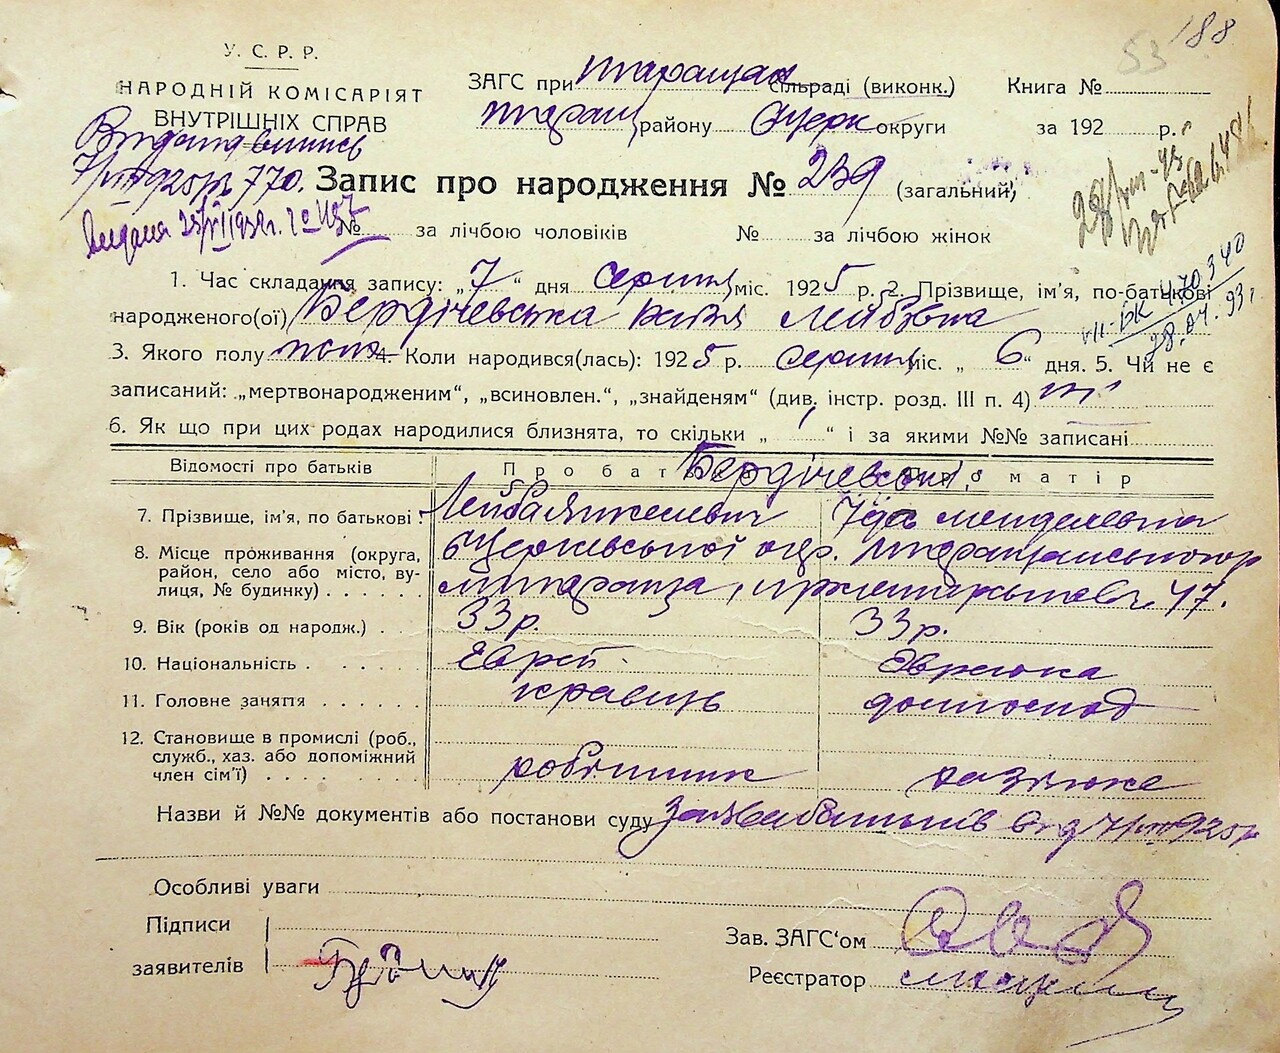 53 188
У. С. Р. Р.
НАРОДНІЙ КОМІСАРІЯТ
ВНУТРІШНІХ СПРАВ
ЗАГС при Таращан сільраді (виконк.) Книга №
Таращ району Б/Церк округи за 192 р.
Видана выпись
7/VIII 925р № 770.
Запис про народження № 239 (загальний)
Видана 25/VI 1932г.
№ за лічбою чоловіків № за лічбою жінок
1. Час складання запису: „ 7 “ дня серпня міс. 192 5 р. 2. Прізвище, ім'я, по-батькові
народженого(ої) Бердічевська Лейбівна
VII-БК 470340
28.04.93г
3. Якого полу жіно 4. Коли народився(лась): 192 5 р. серпня міс. „ 6 “ дня. 5. Чи не є
записаний: „мертвонародженим“, „всиновлен.“, „знайденям“ (див. інстр. розд. III п. 4)
6. Як що при цих родах народилися близнята, то скільки „ “ і за якими №№ записані
Відомості про батьків Про батька Про матір
Бердічевські
7. Прізвище, ім'я, по батькові: Лейба Янкелевич Менделевна
8. Місце проживання (округа, район, село або місто, вулиця, № будинку) Б/Церківської окр. Таращанського р
м. Тараща, 47.
9. Вік (років од народж.) 33 р. 33 р.
10. Національність Еврей Эврейка
11. Головне заняття кравець домоспод
12. Становище в промислі (роб., служб., хаз. або допоміжний член сім'ї) робітник хазяйка
Назви й №№ документів або постанови суду Заява батьків від 7/VIII 925р
Особливі уваги
Підписи
заявителів
Зав. ЗАГС'ом
Реєстратор